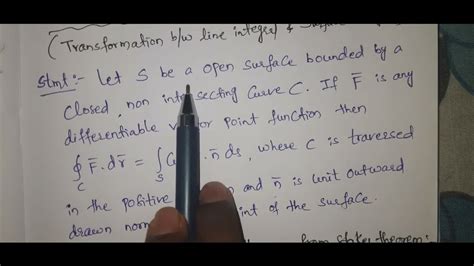 (Transformation b/w line integral & Surface
Stmt:- Let S be a open surface bounded by a
closed, non intersecting curve C. If F̅ is any
differentiable point function then
∮_C F̅.dr̅ = ∫_S .n̅ ds, where C is traversed
in the positive and n̅ is unit outward
drawn of the surface.
from stokes theorem: